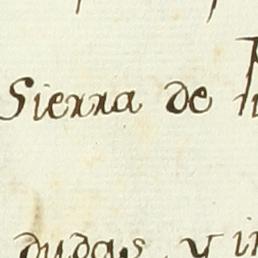 Sierra de
dudas, y